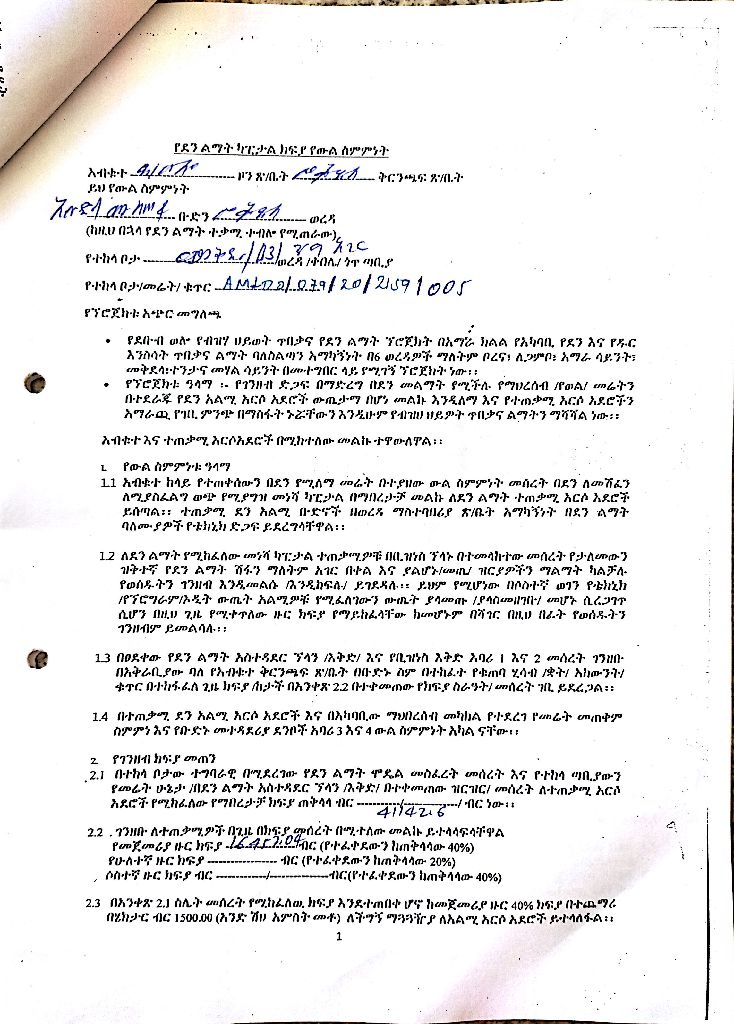 የደን ልማት ካፒታል ክፍያ የውል ስምምነት
አብቁተ ----------------------- ዞን ጽ/ቤት ----------------- ቅርንጫፍ ጽ/ቤት
ይህ የውል ስምምነት
----------------------- ቡድን ----------------- ወረዳ
(ከዚህ በኋላ የደን ልማት ተቃሚ ተብሎ የሚጠራው)
የተከላ ቦታ ----------------------- /03/ ወረዳ /ቀበሌ/ ነጥ ጣቢያ
የተከላ ቦታ/መሬት/ ቁጥር /079/20/2159/005
የፕሮጀክቱ አጭር መግለጫ
• የደቡብ ወሎ የብዝሃ ህይወት ጥበቃና የደን ልማት ፕሮጀክት በአማራ ክልል የአካባቢ የደን እና የዱር
እንስሳት ጥበቃና ልማት ባለስልጣን አማካኝነት በ6 ወረዳዎች ማለትም ቦረና፣ ለጋምቦ፣ አማራ ሳይንት፣
መቅደላ፣ተንታና መሃል ሳይንት በመተግበር ላይ የሚገኝ ፕሮጀክት ነው፡፡
• የፕሮጀክቱ ዓላማ ፡- የገንዘብ ድጋፍ በማድረግ በደን መልማት የሚችሉ የማህረሰብ /የወል/ መሬትን
በተደራጁ የደን አልሚ አርሶ አደሮች ውጤታማ በሆነ መልኩ እንዲለማ እና የተጠቃሚ አርሶ አደሮችን
አማራጪ የገቢ ምንጭ በማስፋት ኑሯቸውን እንዲሁም የብዝሀ ህይዎት ጥበቃና ልማትን ማሻሻል ነው፡፡
አብቁተ እና ተጠቃሚ አርሶአደሮች በሚከተለው መልኩ ተዋውለዋል፡፡
1. የውል ስምምነቱ ዓላማ
1.1 አብቁተ ከላይ የተጠቀሰውን በደን የሚለማ መሬት በተያዘው ውል ስምምነት መሰረት በደን ለመሸፈን
ለሚያስፈልግ ወጭ የሚያግዝ መነሻ ካፒታል በማበረታቻ መልኩ ለደን ልማት ተጠቃሚ አርሶ አደሮች
ይሰጣል፡፡ ተጠቃሚ ደን አልሚ ቡድኖች በወረዳ ማስተባበሪያ ጽ/ቤት አማካኝነት በደን ልማት
ባለሙያዎች የቴክኒክ ድጋፍ ይደረግላቸዋል፡፡
1.2 ለደን ልማት የሚከፈለው መነሻ ካፒታል ተጠቃሚዎቹ በቢዝነስ ፕላኑ በተመላከተው መሰረት የታለመውን
ዝቅተኛ የደን ልማት ሽፋን ማለትም አገር በቀል እና ያልሆኑ/መጤ/ ዝርያዎችን ማልማት ካልቻሉ
የወሰዱትን ገንዘብ እንዲመልሱ /እንዲከፍሉ/ ይገደዳሉ፡፡ ይህም የሚሆነው በሶስተኛ ወገን የቴክኒክ
/የፕሮግራም/ኦዲት ውጤት አልሚዎቹ የሚፈለገውን ውጤት ያላመጡ /ያላስመዘገቡ/ መሆኑ ሲረጋገጥ
ሲሆን በዚህ ጊዜ የሚቀጥለው ዙር ክፍያ የማይከፈላቸው ከመሆኑም በሻገር በዚህ በፊት የወሰዱትን
ገንዘብም ይመልሳሉ፡፡
1.3 በፀደቀው የደን ልማት አስተዳደር ፕላን /እቅድ/ እና የቢዝነስ እቅድ አባሪ 1 እና 2 መሰረት ገንዘቡ
በአቅራቢያው ባለ የአብቁተ ቅርንጫፍ ጽ/ቤት በቡድኑ ስም በተከፈተ የቁጠባ ሂሳብ /ቋት/ አካውንት/
ቁጥር በተከፋፈለ ጊዜ ክፍያ /ከታች በአንቀጽ 2.2 በተቀመጠው የክፍያ ስራዓት/ መሰረት ገቢ ይደረጋል፡፡
1.4 በተጠቃሚ ደን አልሚ አርሶ አደሮች እና በአካባቢው ማህበረሰብ መካከል የተደረገ የመሬት መጠቀም
ስምምነ እና የቡድኑ መተዳደሪያ ደንቦች አባሪ 3 እና 4 ውል ስምምነት አካል ናቸው፡፡
2. የገንዘብ ክፍያ መጠን
2.1 በተከላ ቦታው ተግባራዊ በሚደረገው የደን ልማት ሞዴል መስፈረት መሰረት እና የተከላ ጣቢያውን
የመሬት ሁኔታ /በደን ልማት አስተዳደር ፕላን /እቅድ/ በተቀመጠው ዝርዝር/ መሰረት ለተጠቃሚ አርሶ
አደሮች የሚከፈለው የማበረታቻ ክፍያ ጠቅላላ ብር -----------/--------------/ ብር ነው፡፡
41142.6
2.2 ገንዘቡ ለተጠቃሚዎች በጊዜ በክፍያ መሰረት በሚተለው መልኩ ይተላላፍላቸዋል
የመጀመሪያ ዙር ክፍያ -16457.04- ብር (የተፈቀደውን ከጠቅላላው 40%)
የሁለተኛ ዙር ክፍያ ----------------- ብር (የተፈቀደውን ከጠቅላላው 20%)
ሶስተኛ ዙር ክፍያ ብር -------------/---------------ብር(የተፈቀደውን ከጠቅላላው 40%)
2.3 በአንቀጽ 2.1 ስሌት መሰረት የሚከፈለው ክፍያ እንደተጠበቀ ሆኖ ከመጀመሪያ ዙር 40% ክፍያ በተጨማሪ
በሄክታር ብር 1500.00 (አንድ ሽህ አምስት መቶ) ለችግኝ ማጓጓዥያ ለአልሚ አርሶ አደሮች ይተላለፋል፡፡
1